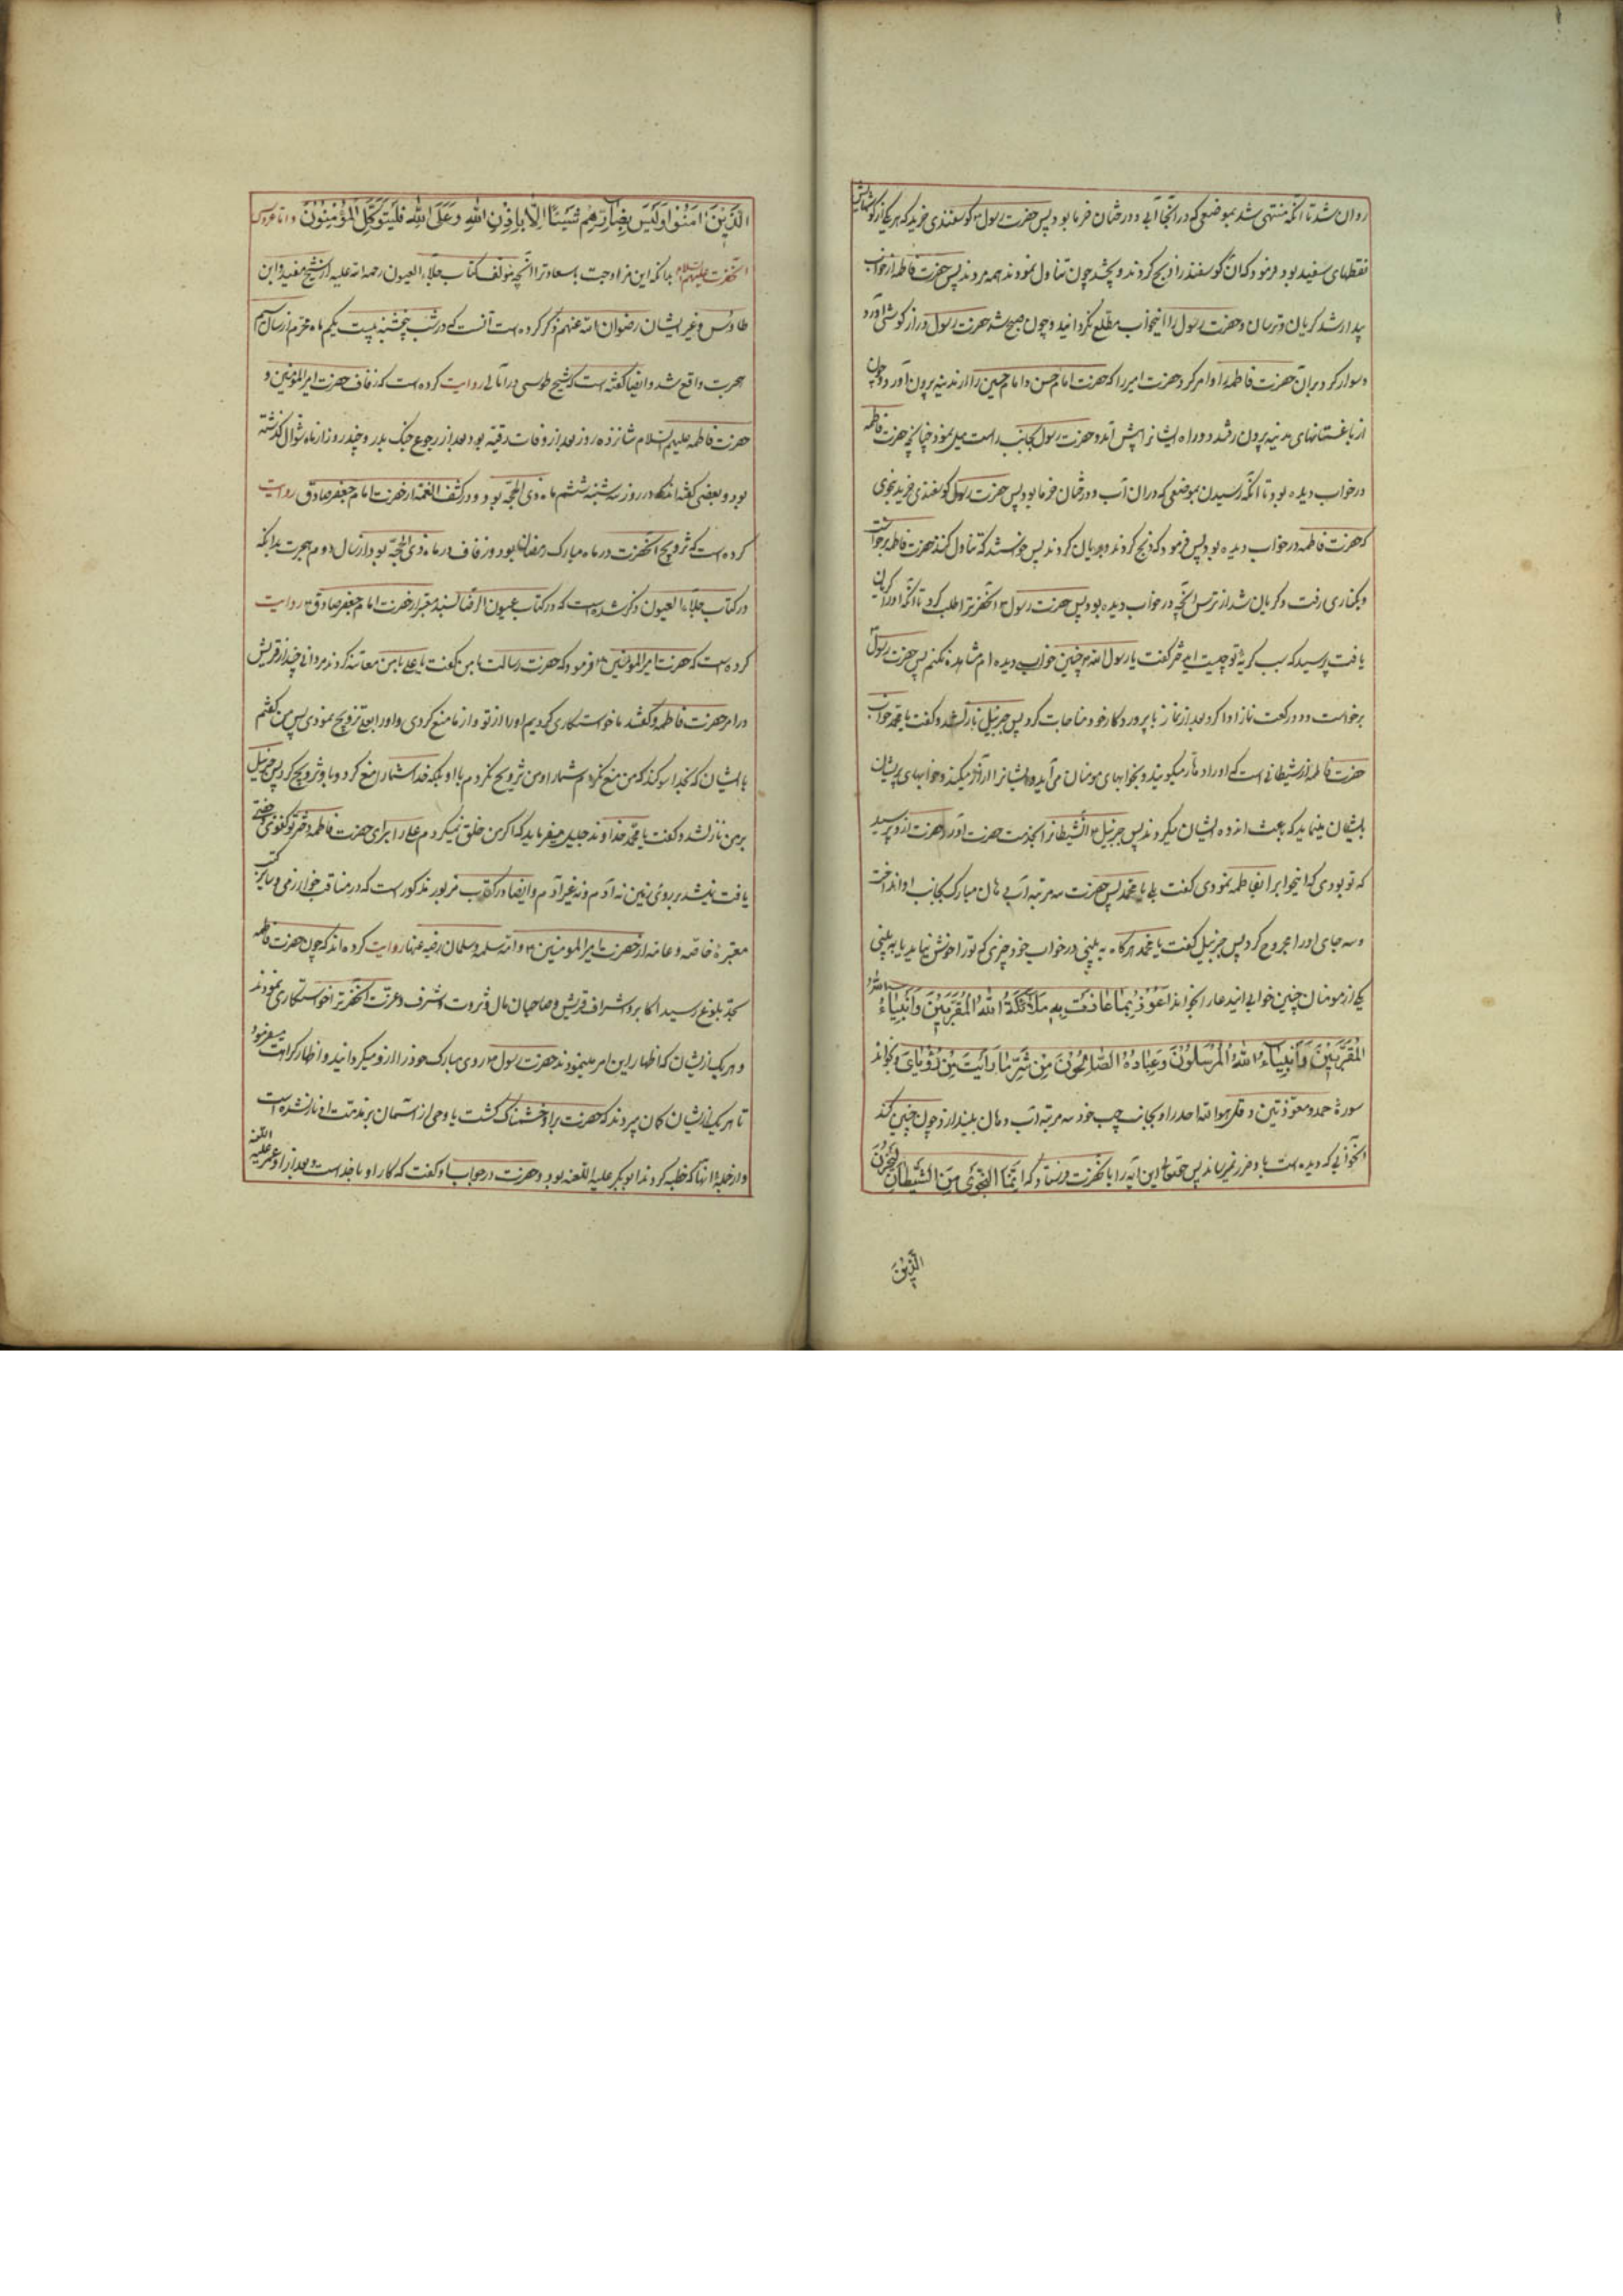 روان شد تا آنکه منتهی شد بموضعی که در آنجا آبی و درختان خرما بود پس حضرت رسول ۳ کوسفندی خرید که هر یکی از کوشهایش
نقطهای سفید بود فرمود که آن کوسفند را ذبح کردند و پختند چون تناول نمودند همه مردند پس حضرت فاطمه از خواب
بیدار شد کریان و ترسان و حضرت رسول را اینخواب مطلع نکردانید و چون صبح شد حضرت رسول دراز کوشی آورد
و سوار کرد بر آن حضرت فاطمه را و امر کرد حضرت امیر را که حضرت امام حسن و امام حسین را از مدینه بیرون آورد و چون
از باغستانهای مدینه بیرون رفتند دو راه ایشانرا پیش آمد و حضرت رسول بجانب راست میل نمود چنانچه حضرت فاطمه
در خواب دیده بود تا آنکه رسیدن بموضعی که در آن آب و درختان خرما بود پس حضرت رسول کوسفندی خرید بنحوی
که حضرت فاطمه در خواب دیده بود پس فرمود که ذبح کردند و بریان کردند پس خواستند که تناول کنند حضرت فاطمه برخواست
و بکناری رفت و کریان شد از ترس آنچه در خواب دیده بود پس حضرت رسول ۳ آنحضرترا طلب کرد تا آنکه او را کریان
یافت پرسید که سبب کریهٔ تو چیست ای دختر کفت یا رسول الله چنین خوابی دیده ام مشاهده نکنم پس حضرت رسول
برخواست و دو رکعت نماز ادا کرد بعد از نماز با پروردکار خود مناجات کرد پس جبرئیل نازلشد و کفت یا محمد خواب
حضرت فاطمه از شیطانی است که او را دهار میکویند و بخوابهای مومنان می آید و ایشانرا آزار میکند و خوابهای پریشان
بایشان مینماید که باعث اندوه ایشان میکردند پس جبرئیل ۳ آنشیطانرا بخدمت حضرت آورد حضرت از و پرسید
که تو بودی که اینخوابرا بفاطمه نمودی کفت بلی یا محمد پس حضرت سه مرتبه آب دهان مبارک بجانب او انداخت
و سه جای او را مجروح کرد پس جبرئیل کفت یا محمد هر کاه به بینی در خواب خود چیزی که تو را خوش نیاید یا به بینی
یکی از مومنان چنین خوابی این دعا را بخواند اَعُوْذُ بِمَا عَاذَتْ بِهِ مَلَائِكَةُ اللهِ الْمُقَرَّبِيْنَ وَاَنْبِيَاءُ
الْمُقَرَّبِيْنَ وَاَنْبِيَاءُ اللهِ الْمُرْسَلُوْنَ وَعِبَادُهُ الصَّالِحُوْنَ مِنْ شَرِّ مَا رَاَيْتَ مِنْ رُؤْيَايَ و بخواند
سورهٔ حمد و معوذتین و قل هو الله احد را و بجانب چپ خود سه مرتبه آب دهان بیندازد چون چنین کند
آنخوابی که دیده است باو ضرر نمیرساند پس حقتعالی این آیه را با آنحضرت فرستاد که اِنَّمَا النَّجْوٰى مِنَ الشَّيْطَانِ لِيَحْزُنَ
الَّذِيْنَ
الَّذِيْنَ اٰمَنُوْا وَلَيْسَ بِضَارِّهِمْ شَيْئًا اِلَّا بِاِذْنِ اللهِ وَعَلَى اللهِ فَلْيَتَوَكَّلِ الْمُؤْمِنُوْنَ و اما عروسی
آنحضرت علیهم السلام بدانکه این مزاوجت باسعادترا آنچه مؤلف کتاب جلاء العیون رحمة الله علیه از شیخ مفید و ابن
طاوس و غیر ایشان رضوان الله عنهم ذکر کرده است آنست که در شب پنجشنبه بیست یکم ماه محرم از سال سیم
هجرت واقع شد و ایضا کفته است که شیخ طوسی در امالی روایت کرده است که زفاف حضرت امیر المؤمنین و
حضرت فاطمه علیهم السلام شانزده روز بعد از وفات رقیه بود بعد از رجوع جنک بدر و چند روز از ماه شوال کذشته
بود و بعضی کفته اند که در روز سه شنبه ششم ماه ذی الحجه بود و در کشف الغمه از حضرت امام جعفر صادق روایت
کرده است که تزویج آنحضرت در ماه مبارک رمضان بود و زفاف در ماه ذی الحجه بود از سال دوم هجرت بدانکه
در کتاب جلاء العیون ذکر شده است که در کتاب عیون الرضا بسند معتبر از حضرت امام جعفر صادق ۳ روایت
کرده است که حضرت امیر المؤمنین ۳ فرمود که حضرت رسالت بمن کفت یا علی بمن معاتبه کردند مردانی چند از قریش
در امر حضرت فاطمه و کفتند ما خواستکاری کردیم او را از تو و از ما منع کردی و او را بعلی تزویج نمودی پس من کفتم
با ایشان که بخدا سوکند که من منع نکردم شما را و من تزویج نکردم با او بلکه خدا شما را منع کرد و باو تزویج کرد پس جبرئیل
بر من نازلشد و کفت یا محمد خداوند جلیل میفرماید که اکر من خلق نمیکردم علی را برای حضرت فاطمه دختر تو کفوی و جفتی
یافت نمیشد بر روی زمین نه آدم و نه غیر آدم و ایضا در کتاب مزبور مذکور است که در مناقب خوارزمی و سایر کتب
معتبرهٔ خاصه و عامه از حضرت امیر المومنین ۳ و ام سلمه و سلمان رضی عنها روایت کرده اند که چون حضرت فاطمه
بحد بلوغ رسید اکابر و اشراف قریش و صاحبان مال و ثروت و شرف و عزت آنحضرترا خواستکاری نمودند
و هر یک از ایشان که اظهار این امر مینمودند حضرت رسول ۳ روی مبارک خود را از و میکردانید و اظهار کراهت میفرمود
تا هر یک از ایشان کمان میبردند که حضرت بر او خشمناک کشت یا وحی از آسمان بر مذمت او نازلشده است
و از جمله آنها که خطبه کردند ابوبکر علیه اللعنه بود و حضرت در جواب او کفت که کار او با خداست و بعد از او عمر علیه اللعنه